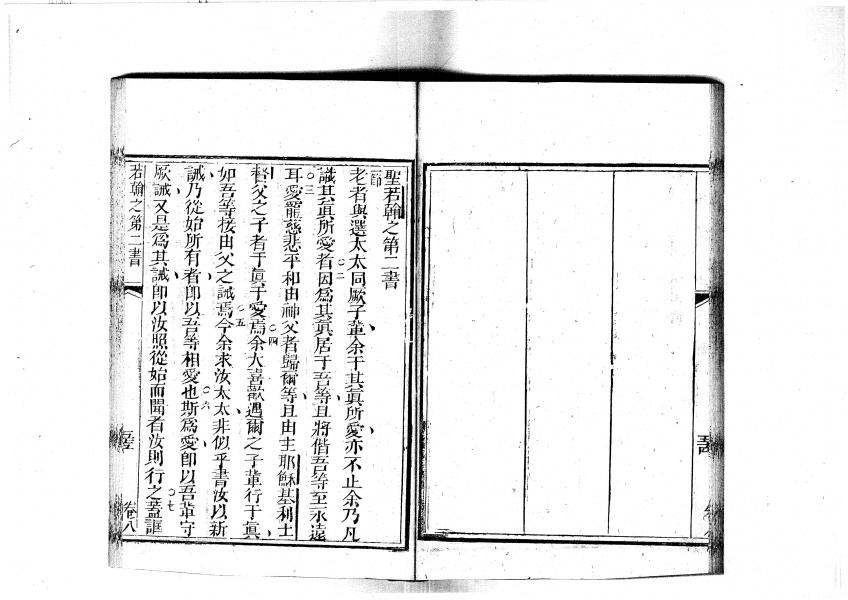 聖若翰之第二書
節
老者與選太太同厥子輩余于其眞所愛亦不止余乃凡
識其眞所愛者○二因爲其眞居于吾等且將偕吾等至永遠
耳○三愛寵慈悲平和由神父者歸爾等且由主耶穌基利士
督父之子者于眞于愛焉○四余大喜歡遇爾之子輩行于眞
如吾等接由父之誡焉○五今余求汝太太非似乎書汝以新
誡乃從始所有者卽以吾等相愛也○六斯爲愛卽以吾輩守
厥誡又是爲其誡卽以汝照從始而聞者汝則行之○七蓋誆
若翰之第二書
卷八